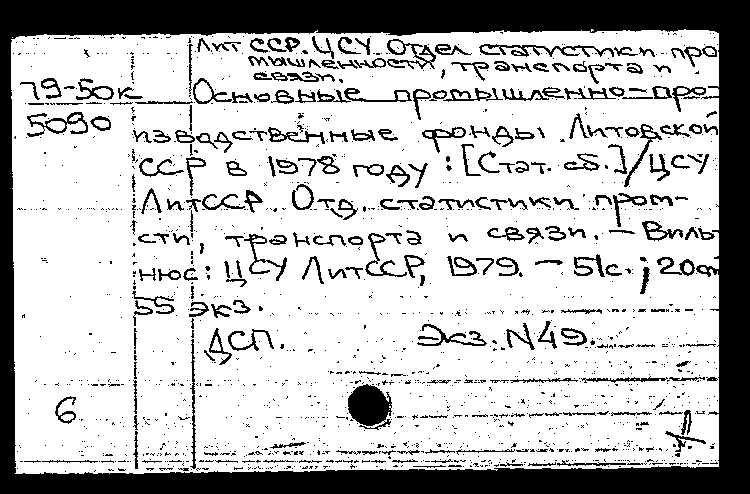 Лит ССР. ЦСУ. Отдел статистики про-
мышленности, транспорта и
связи.
79-50к Основные промышленно-про-
5090 изводственные фонды Литовской
ССР в 1978 году : [Стат. сб.] / ЦСУ
ЛитССР. Отд. статистики пром-
сти, транспорта и связи. — Виль-
нюс : ЦСУ ЛитССР, 1979. — 51с. ; 20см
55 экз.
ДСП. Экз. N49.
6